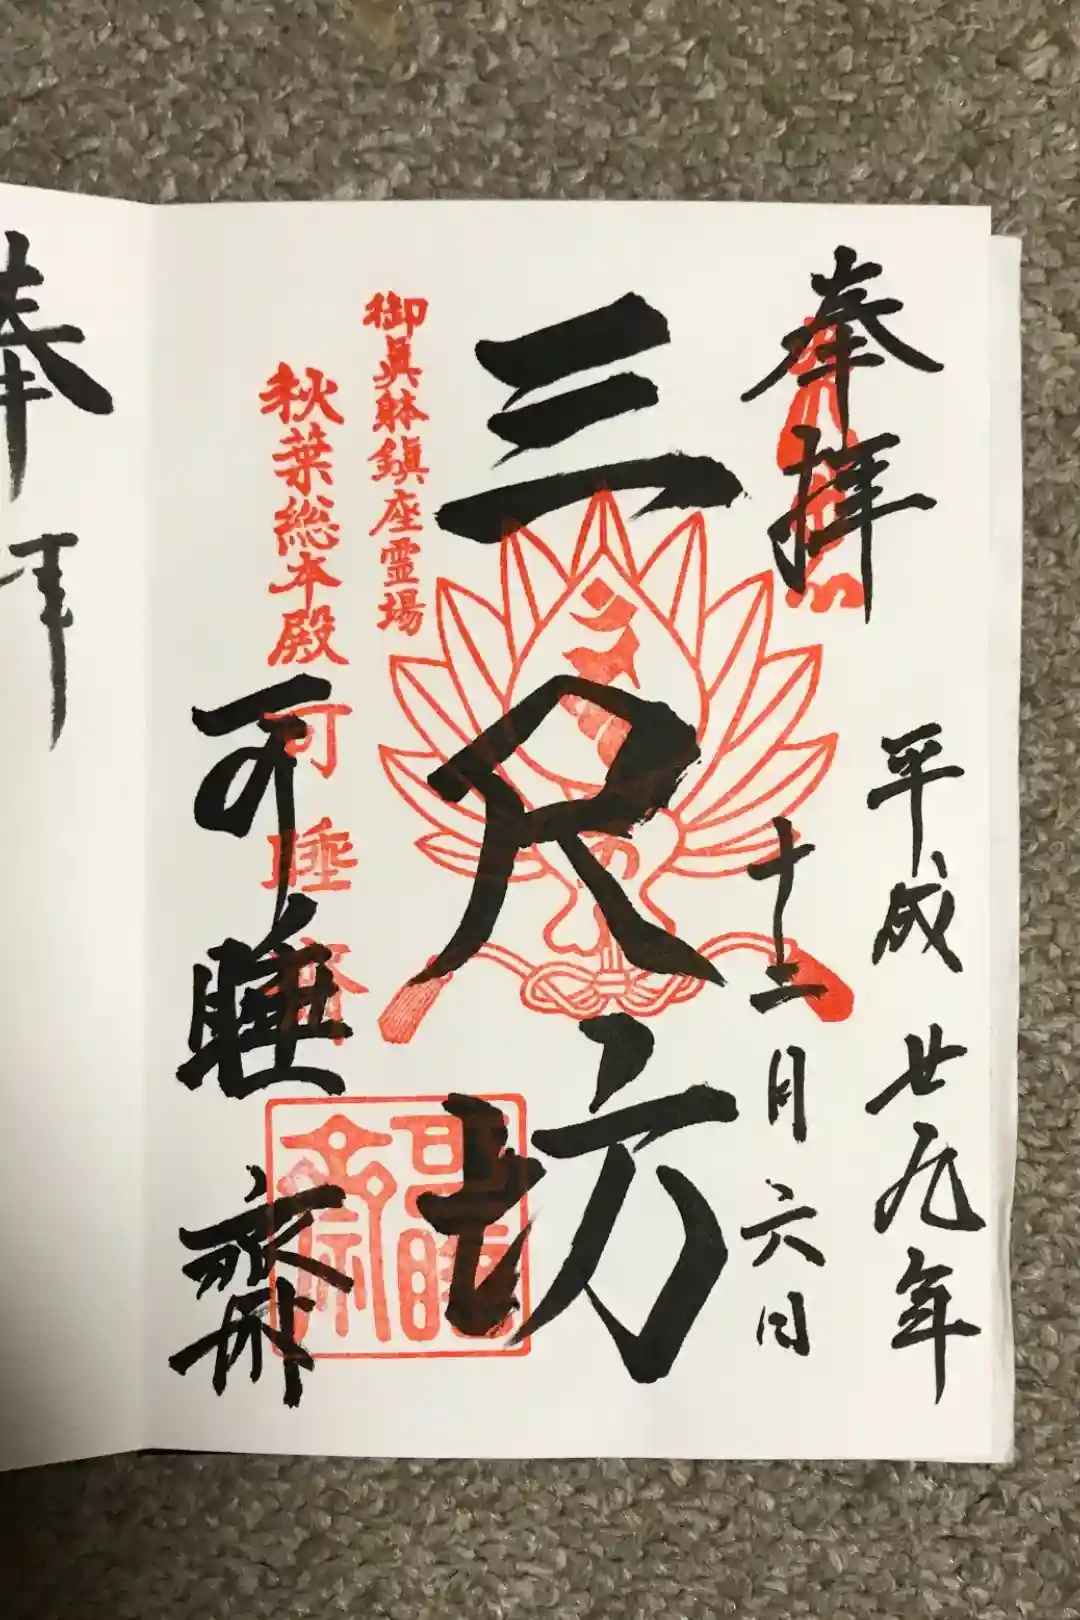 奉拝
平成廿九年
十二月六日
三尺坊
御眞躰鎮座霊場
秋葉総本殿
可睡斎
可睡齋
可睡齋
奉拝